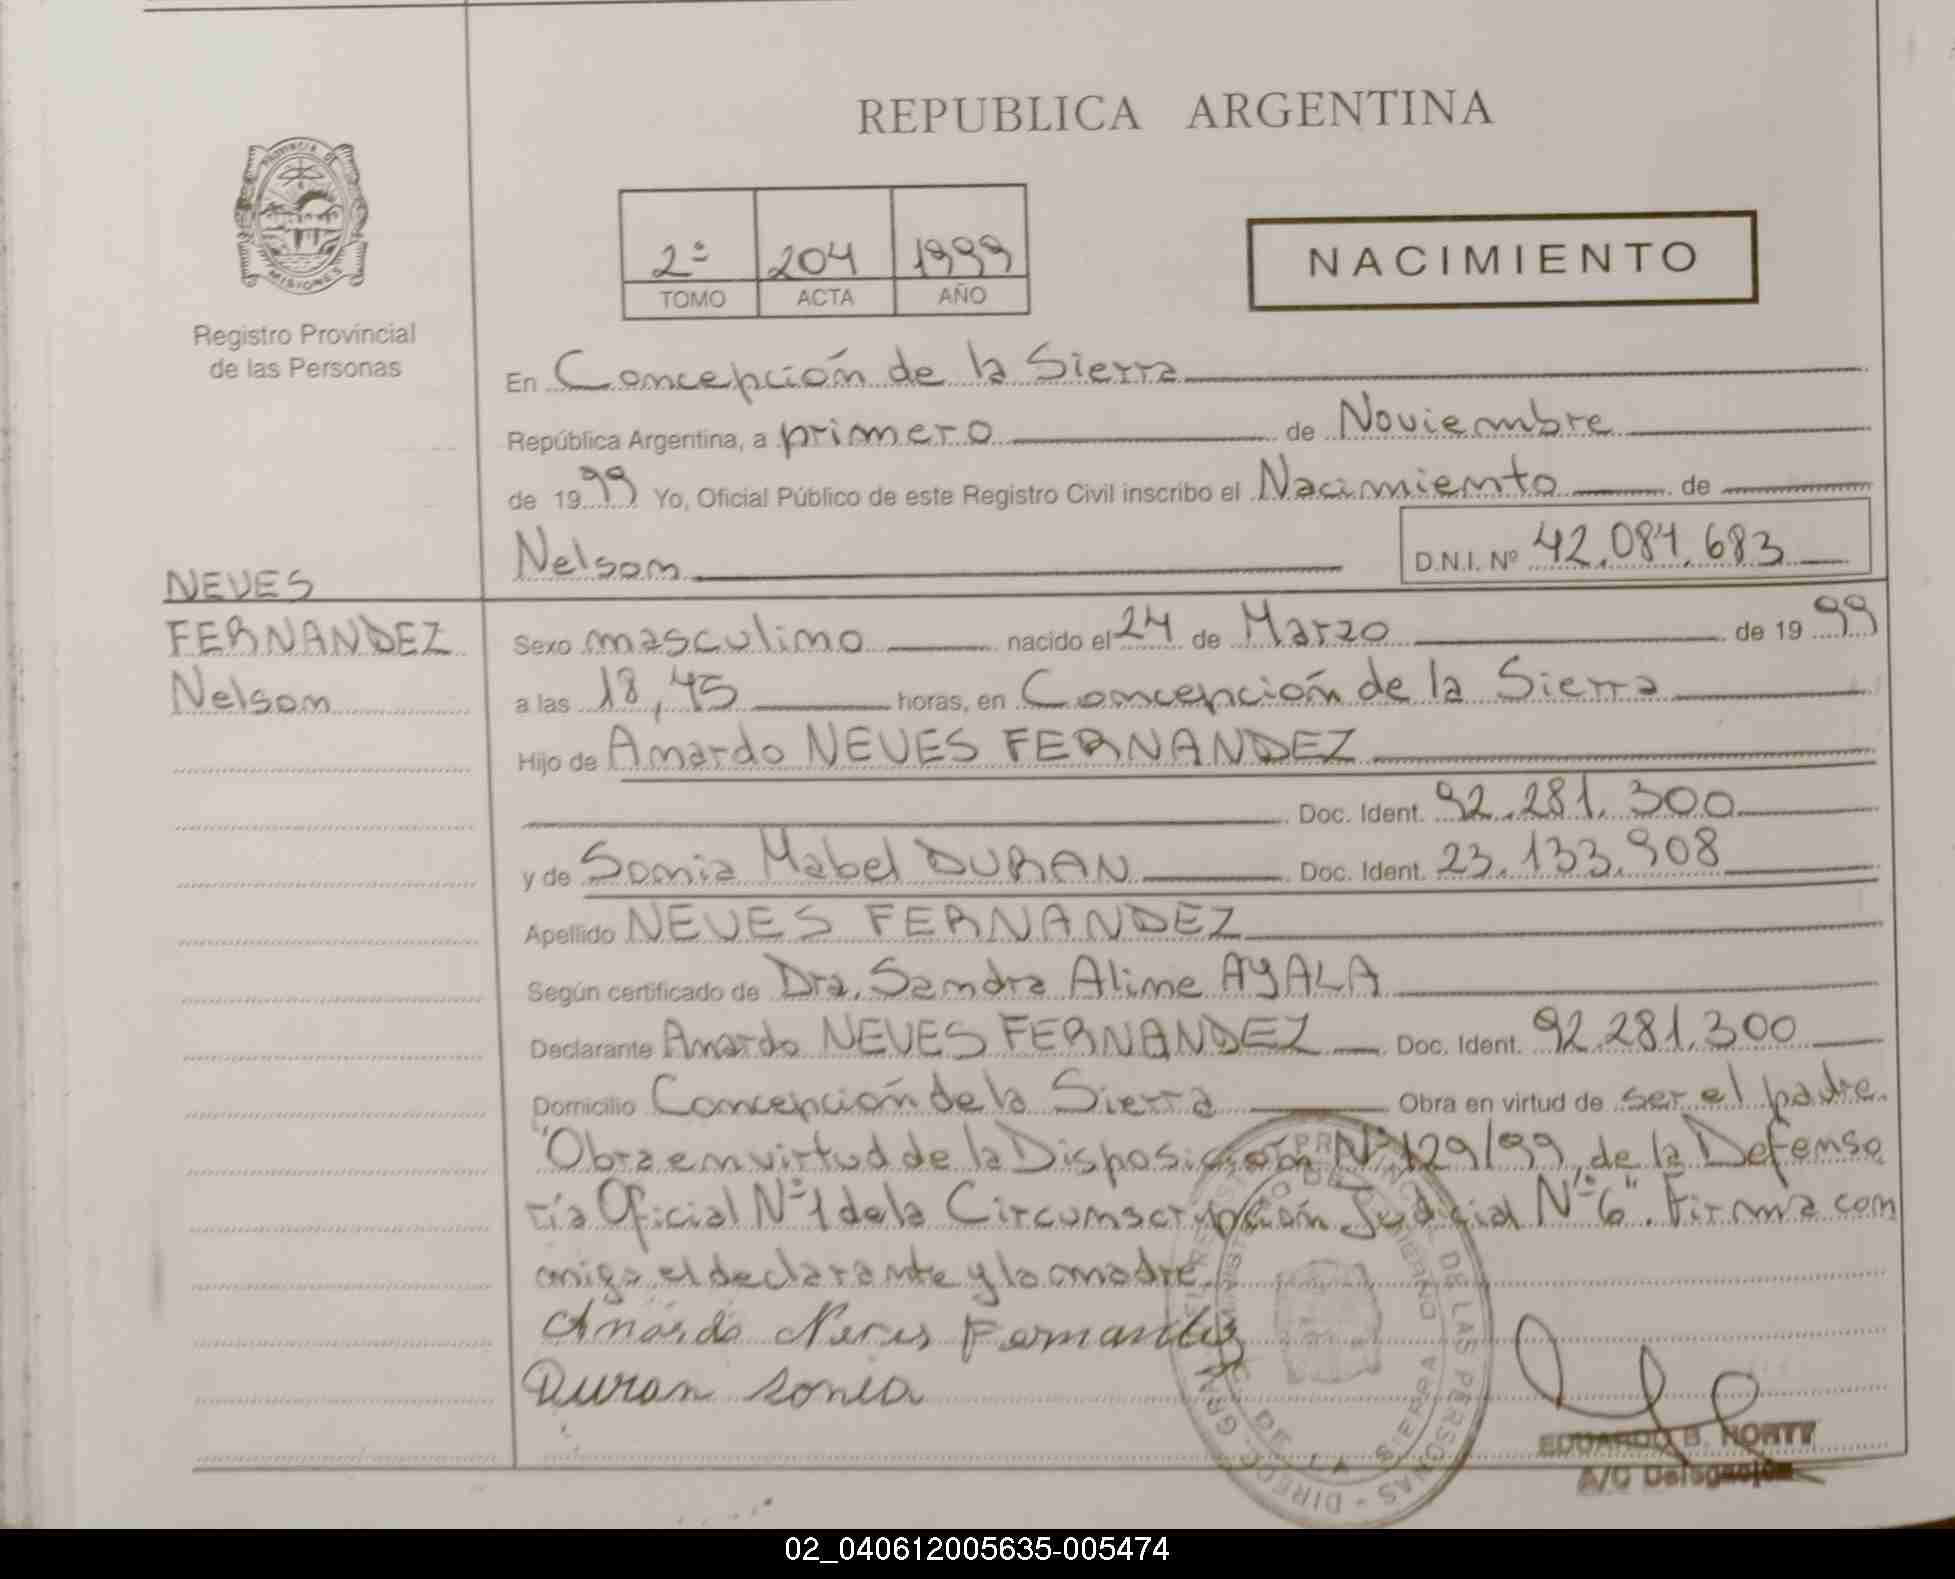 REPUBLICA ARGENTINA
PROVINCIA DE MISIONES
Registro Provincial
de las Personas
2º 204 1999
TOMO ACTA AÑO
NACIMIENTO
En Concepción de la Sierra
República Argentina, a primero de Noviembre
de 1999 Yo, Oficial Público de este Registro Civil inscribo el Nacimiento de
Nelson D.N.I. Nº 42.084.683
NEVES
FERNANDEZ
Nelson
Sexo masculino nacido el 24 de Marzo de 1999
a las 18,45 horas, en Concepción de la Sierra
Hijo de Amardo NEVES FERNANDEZ
Doc. Ident. 92.281.300
y de Sonia Mabel DURAN Doc. Ident. 23.133.908
Apellido NEVES FERNANDEZ
Según certificado de Dra. Sandra Aline AYALA
Declarante Amardo NEVES FERNANDEZ Doc. Ident. 92.281.300
Domicilio Concepción de la Sierra Obra en virtud de ser el padre.
"Obra en virtud de la Disposición Nº 129/99, de la Defenso
ría Oficial Nº 1 de la Circunscripción Judicial Nº 6". Firma con
migo el declarante y la madre.
Neves Fernandez
Duran Sonia
EDUARDO B.
A/C Delegación
02_040612005635-005474